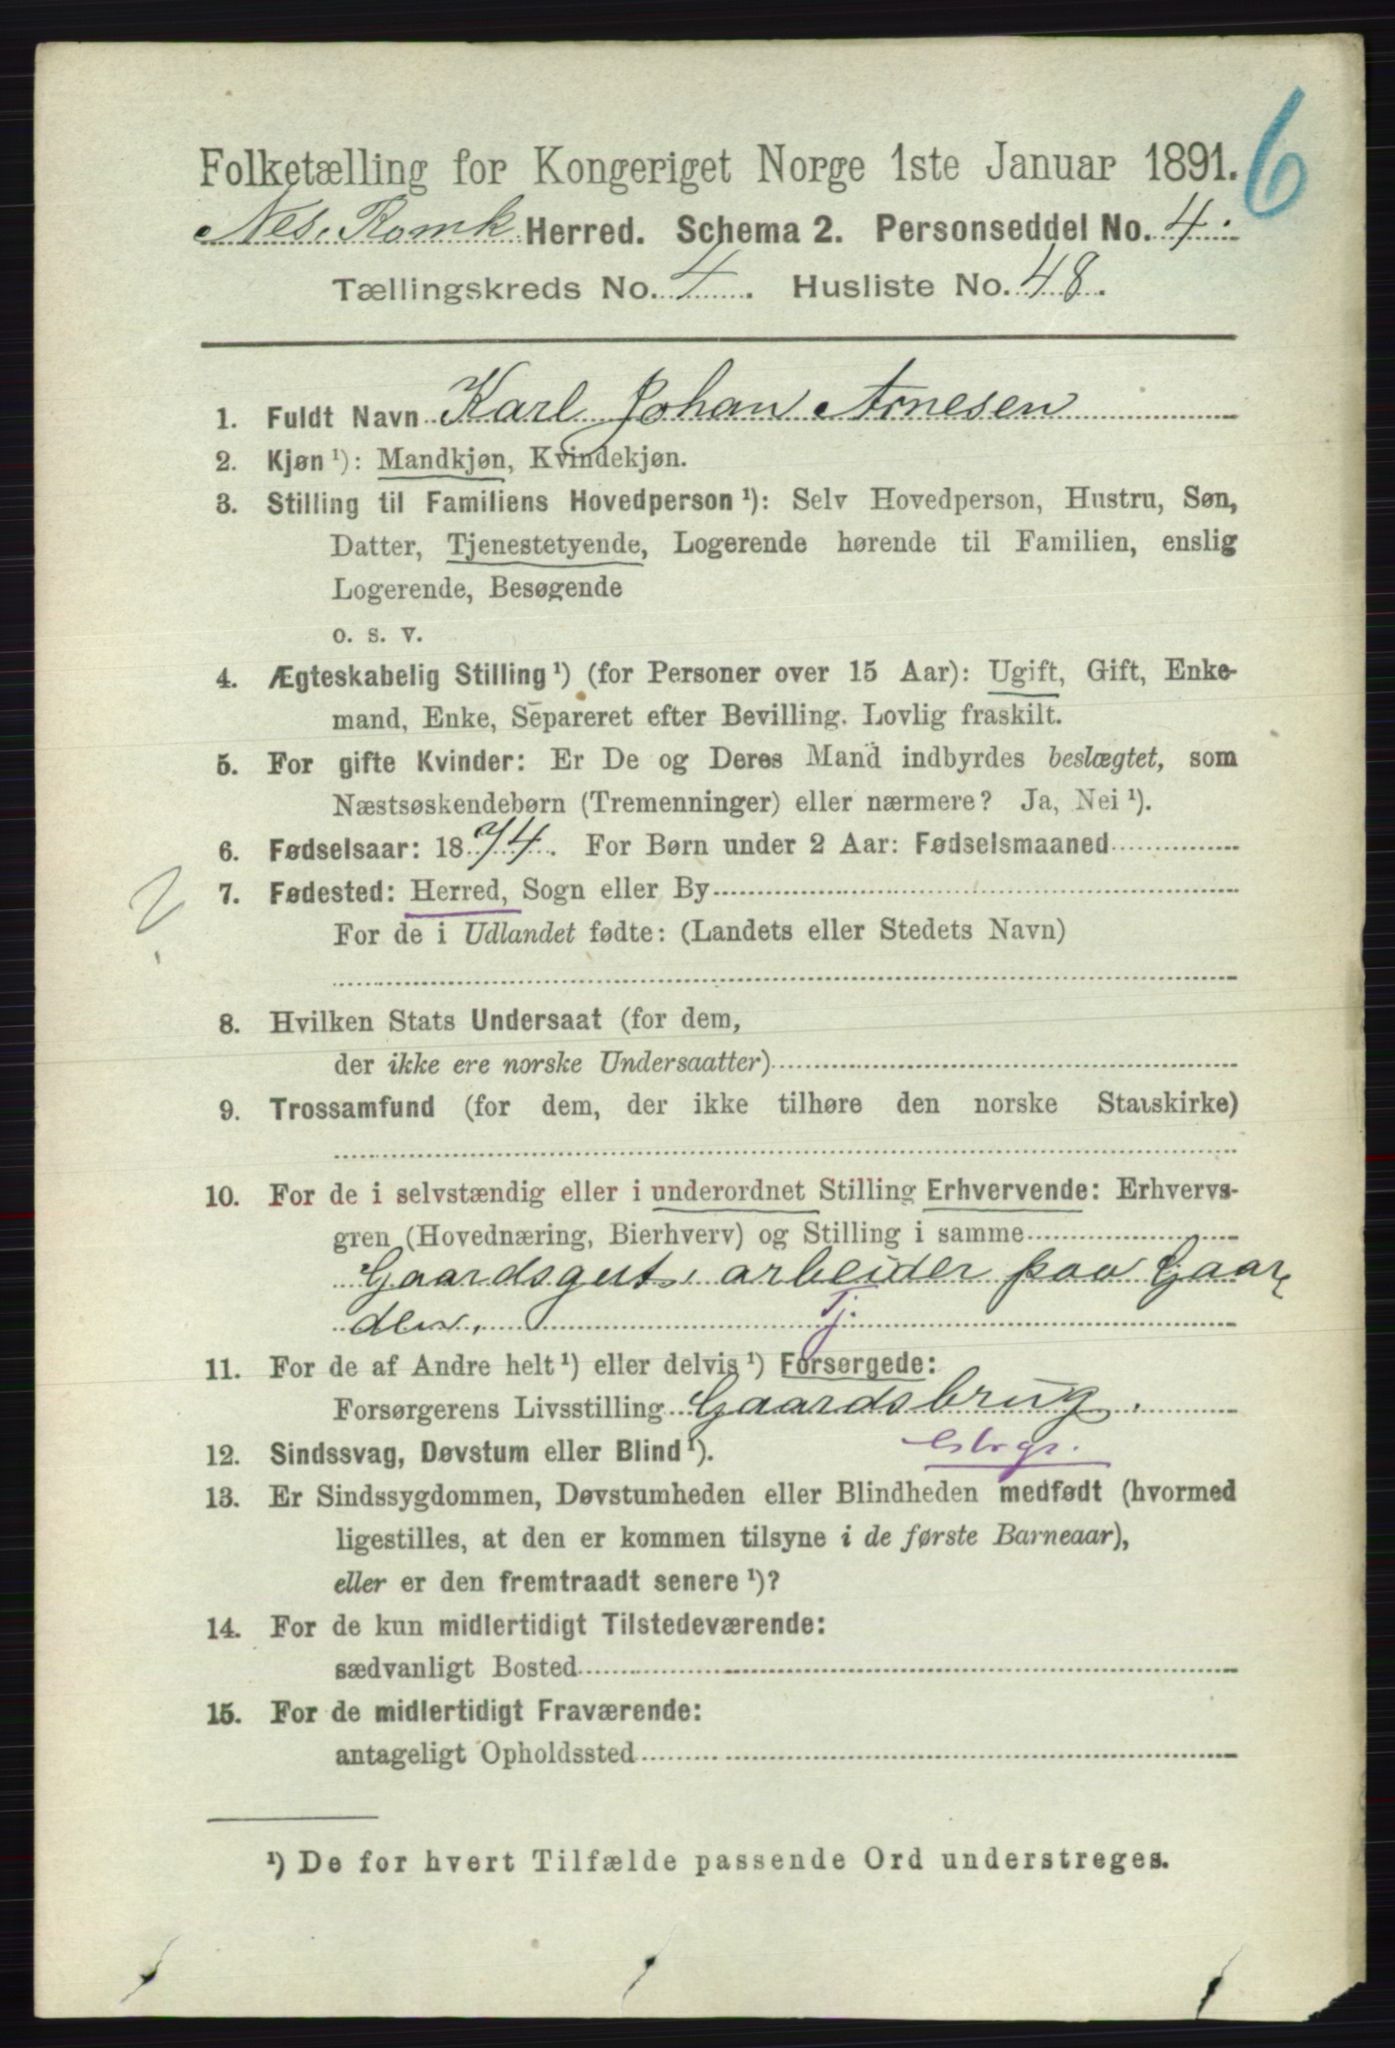 6
Folketælling for Kongeriget Norge 1ste Januar 1891.
Nes. Romk Herred. Schema 2. Personseddel No. 4.
Tællingskreds No. 4. Husliste No. 48.
1. Fuldt Navn Karl Johan Arnesen
2. Kjøn ¹): Mandkjøn, Kvindekjøn.
3. Stilling til Familiens Hovedperson ¹): Selv Hovedperson, Hustru, Søn,
Datter, Tjenestetyende, Logerende hørende til Familien, enslig
Logerende, Besøgende
o. s. v.
4. Ægteskabelig Stilling ¹) (for Personer over 15 Aar): Ugift, Gift, Enke-
mand, Enke, Separeret efter Bevilling. Lovlig fraskilt.
5. For gifte Kvinder: Er De og Deres Mand indbyrdes beslægtet, som
Næstsøskendebørn (Tremenninger) eller nærmere? Ja, Nei ¹).
6. Fødselsaar: 1874. For Børn under 2 Aar: Fødselsmaaned
? 7. Fødested: Herred, Sogn eller By
For de i Udlandet fødte: (Landets eller Stedets Navn)
8. Hvilken Stats Undersaat (for dem,
der ikke ere norske Undersaatter)
9. Trossamfund (for dem, der ikke tilhøre den norske Statskirke)
10. For de i selvstændig eller i underordnet Stilling Erhvervende: Erhvervs-
gren (Hovednæring, Bierhverv) og Stilling i samme
Gaardsgut, arbeider paa Gaar
den. Tj.
11. For de af Andre helt ¹) eller delvis ¹) Forsørgede:
Forsørgerens Livsstilling Gaardsbrug.
12. Sindssvag, Døvstum eller Blind ¹).
13. Er Sindssygdommen, Døvstumheden eller Blindheden medfødt (hvormed
ligestilles, at den er kommen tilsyne i de første Barneaar),
eller er den fremtraadt senere ¹)?
14. For de kun midlertidigt Tilstedeværende:
sædvanligt Bosted
15. For de midlertidigt Fraværende:
antageligt Opholdssted
¹) De for hvert Tilfælde passende Ord understreges.